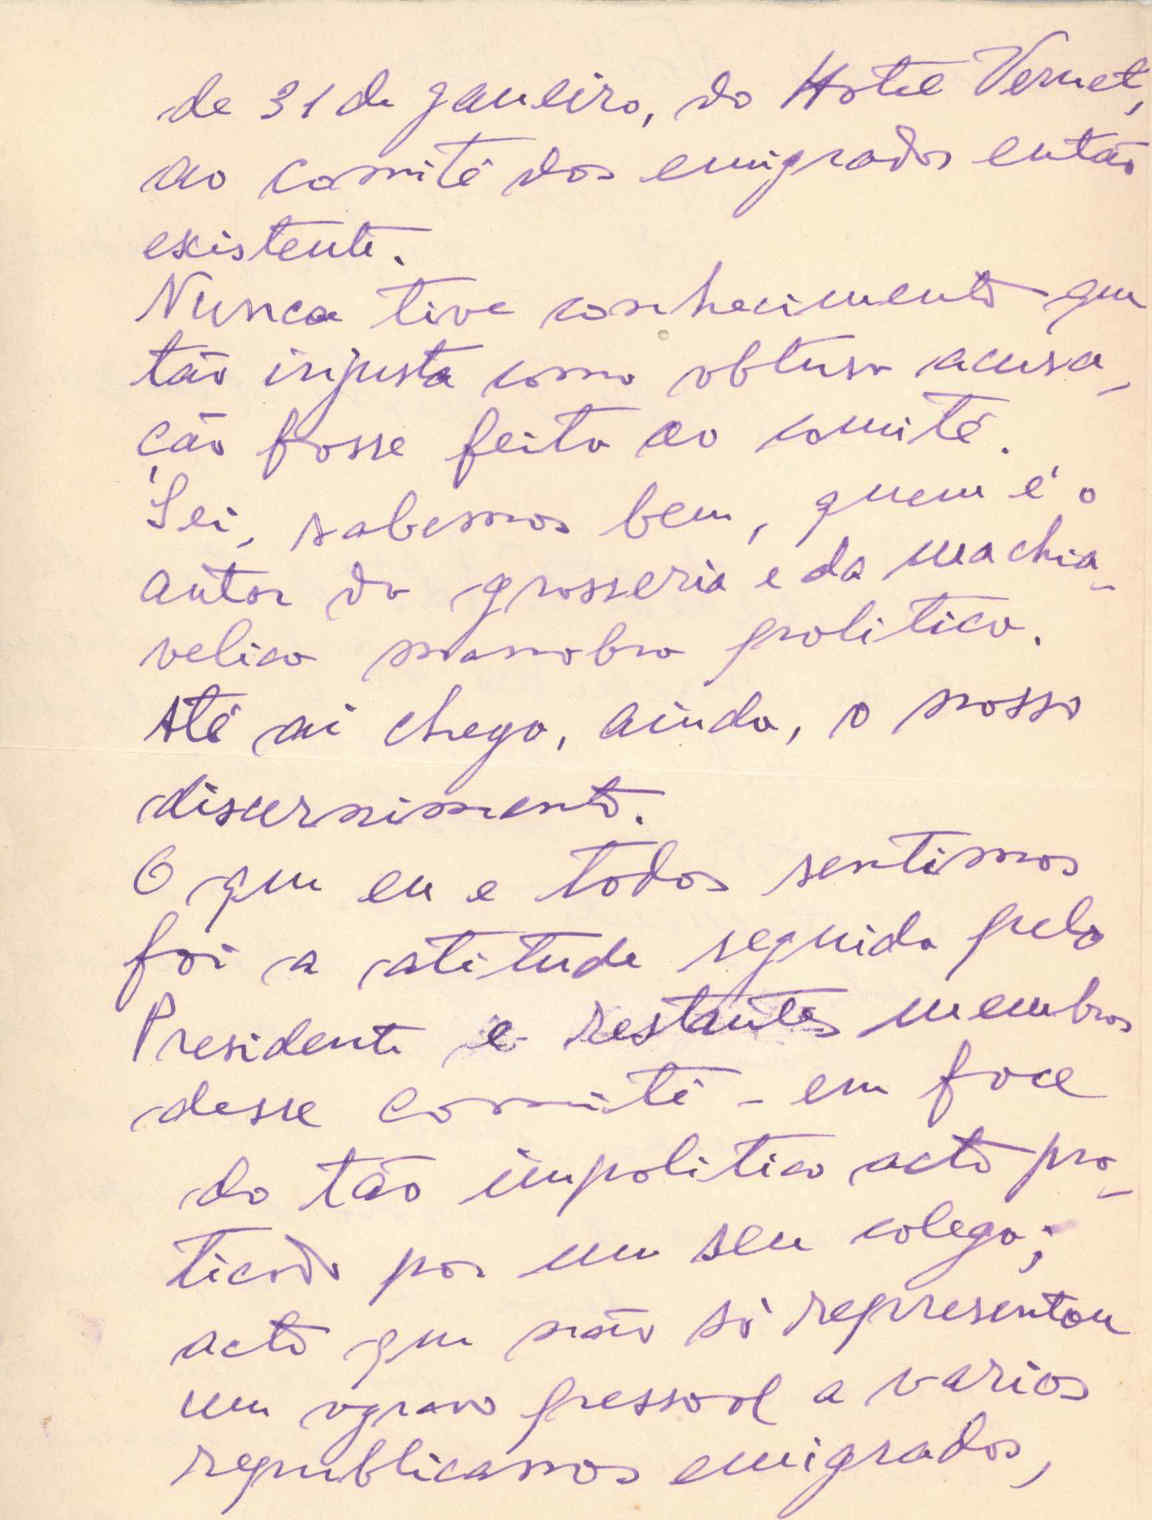 de 31 de janeiro, do Hotel Vernet,
ao comité dos emigrados então
existente.
Nunca tive conhecimento que
tão injusta como obtusa acusa-
ção fosse feita ao comité.
Sei, sabemos bem, quem é o
autor da grosseria e da machia-
velica manobra politica.
Até ai chega, ainda, o nosso
discernimento.
O que eu e todos sentimos
foi a atitude seguida pelo
Presidente e restantes membros
desse comité - em face
do tão impolitico acto pra-
ticado por um seu colega;
acto que não só representou
um agravo pessoal a varios
republicanos emigrados,